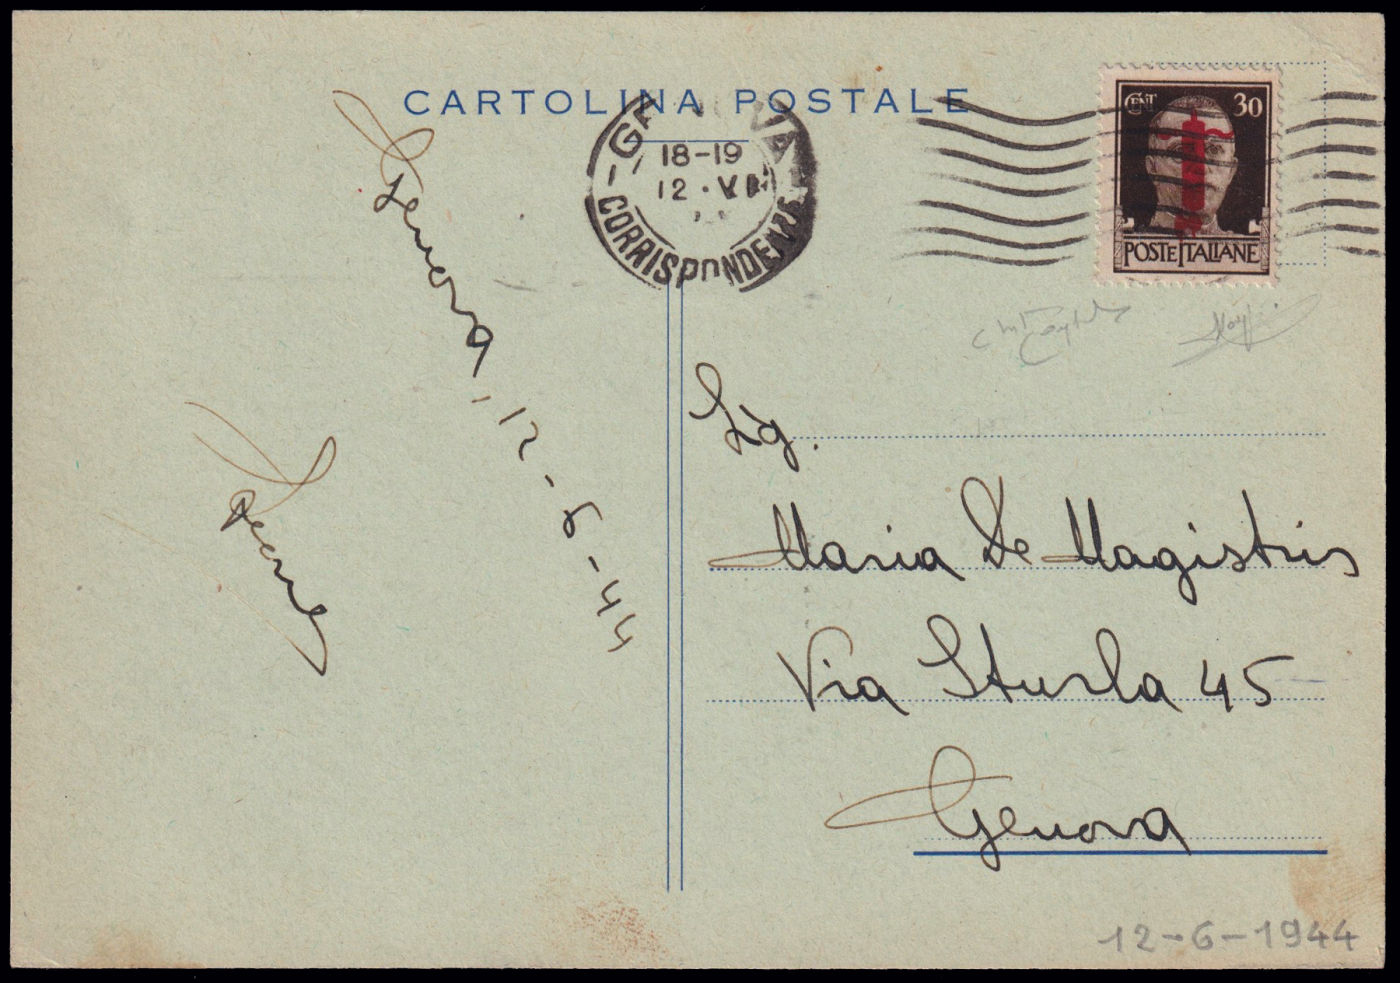 CARTOLINA POSTALE
18-19
12 · VI
CORRISPONDENZE
CENT 30
POSTE ITALIANE
Genova, 12-6-44
Sig.
Maria De Magistris
Via Sturla 45
Genova
12-6-1944